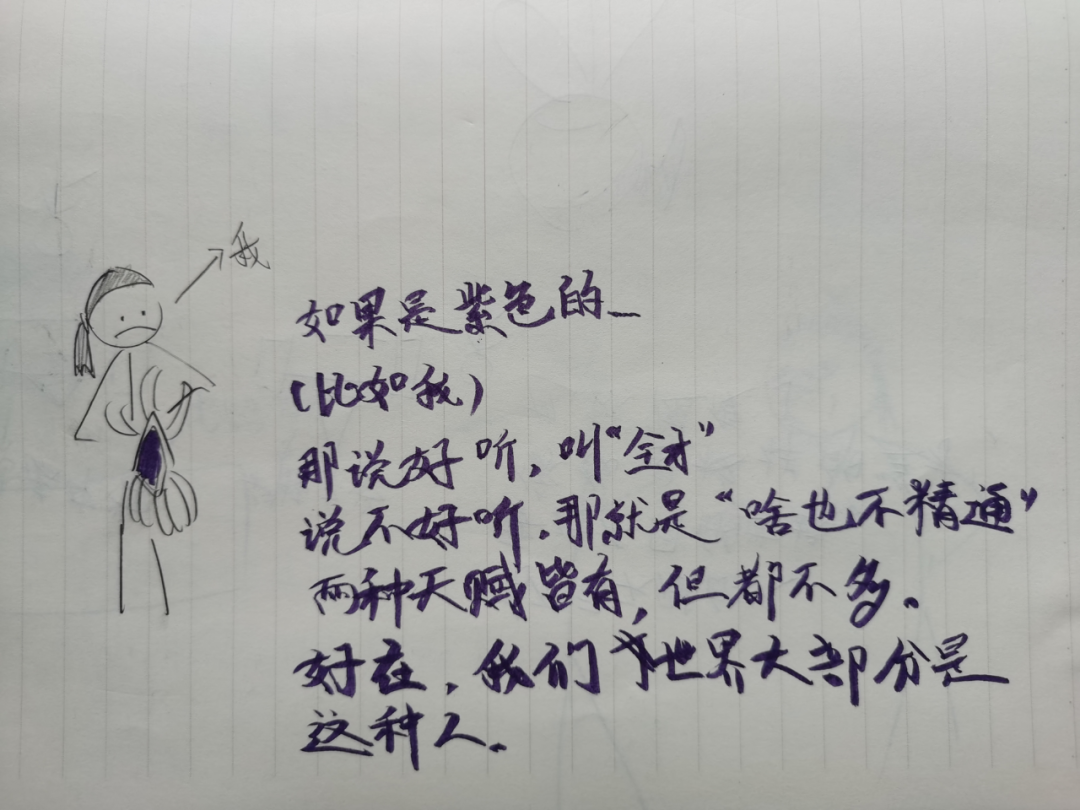 我
如果是紫色的_
(比如我)
那说好听,叫“全才”
说不好听.那就是“啥也不精通”
两种天赋皆有,但都不多.
好在,我们世界大部分是
这种人.